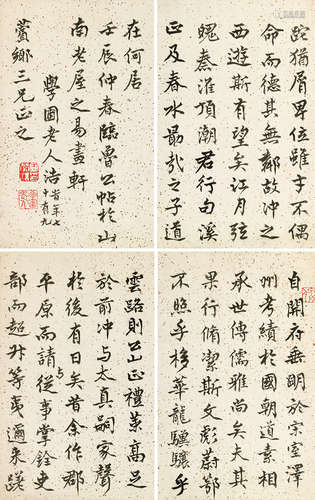 自開府無明於宗室澤
州考績於國朝道素相
承世傳儒雅尚矣夫其
果行脩潔斯文彪蔚鄂
不照乎棣華龍驥驤乎
雲路則公山正禮策高足
於前冲与太真嗣家聲
於後有日矣昔余作郡
平原而請与從事掌銓吏
部而超升等夷邇來蹉
跎猶屑卑位雖才不偶
命而德其無鄰故冲之
西遊斯有望矣江月弦
魄秦淮頂潮君行句溪
正及春水勖哉之子道
在何居
壬辰仲春臨魯公帖於山
南老屋之易畫軒
學圃老人浩
時年七
十有九
鄉三兄正之